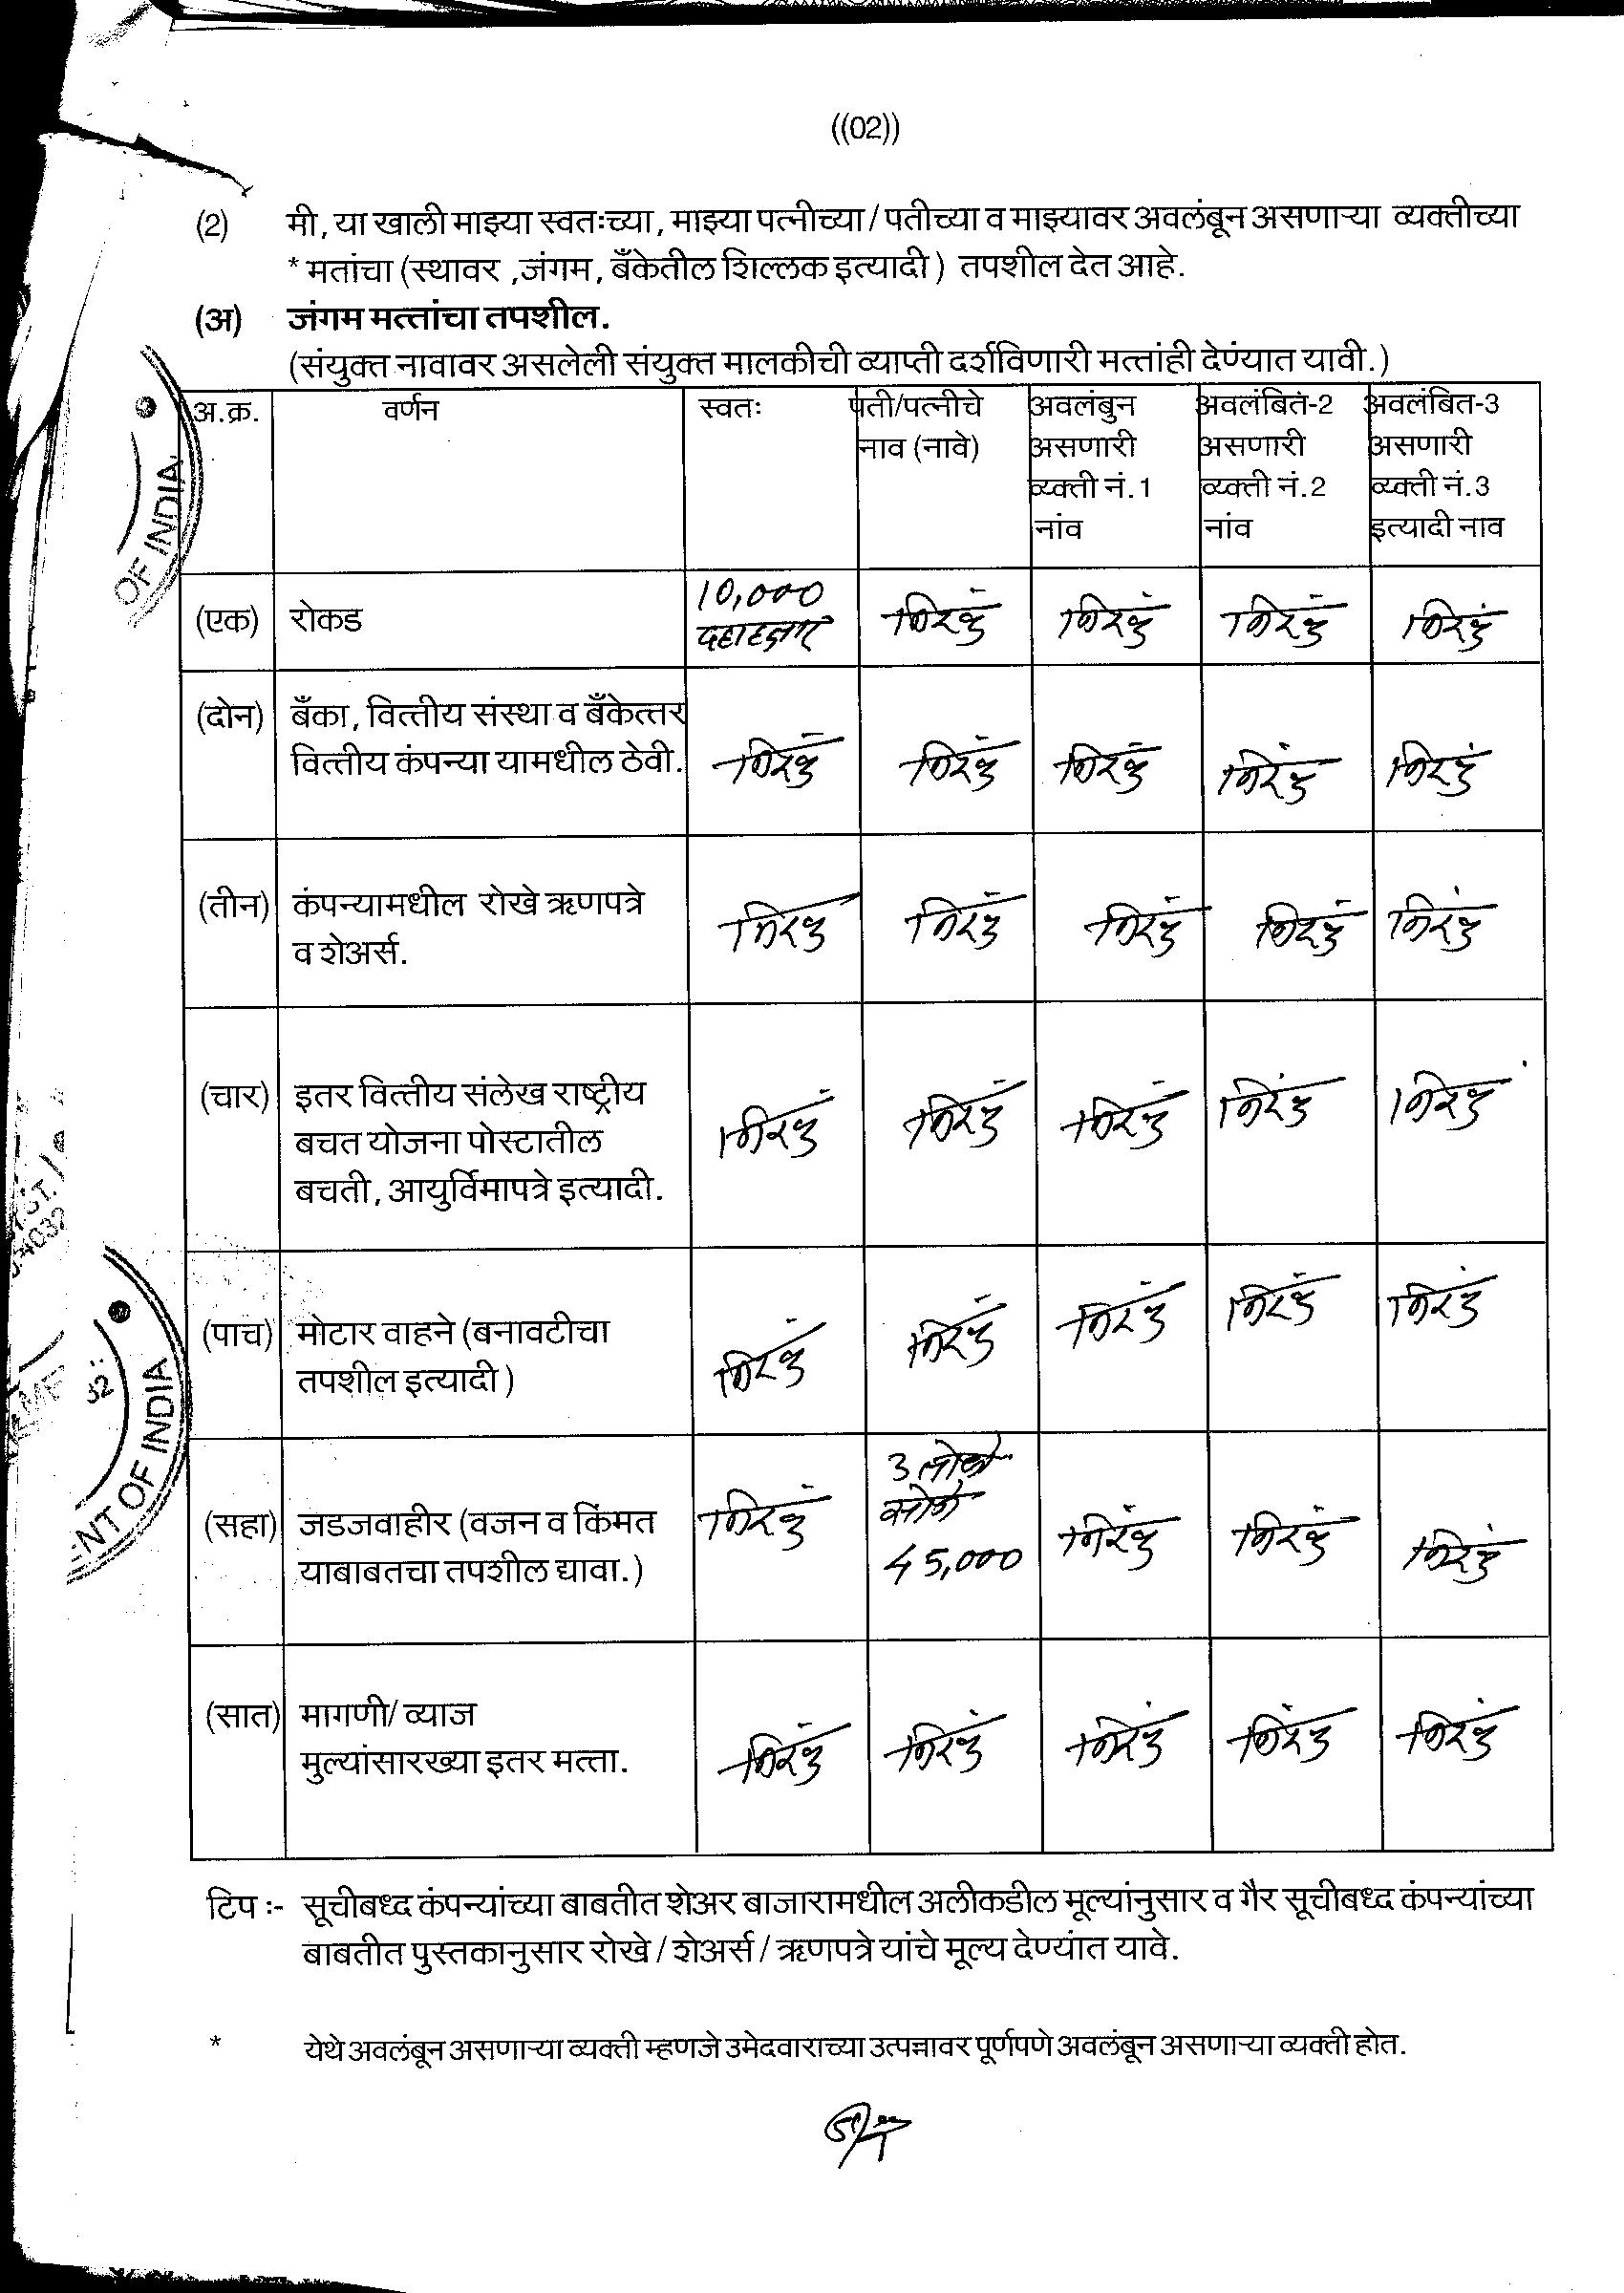 ((02))
(2) मी, या खाली माझ्या स्वतःच्या, माझ्या पत्नीच्या / पतीच्या व माझ्यावर अवलंबून असणाऱ्या व्यक्तीच्या
* मतांचा (स्थावर ,जंगम, बँकेतील शिल्लक इत्यादी) तपशील देत आहे.
(अ) जंगम मत्तांचा तपशील.
(संयुक्त नावावर असलेली संयुक्त मालकीची व्याप्ती दर्शविणारी मत्तांही देण्यात यावी.)
अ.क्र. वर्णन स्वतः पती/पत्नीचे अवलंबुन अवलंबित-2 अवलंबित-3
नाव (नावे) असणारी असणारी असणारी
व्यक्ती नं.1 व्यक्ती नं.2 व्यक्ती नं.3
नांव नांव इत्यादी नाव
10,000
(एक) रोकड दहाहजार निरंक निरंक निरंक निरंक
(दोन) बँका, वित्तीय संस्था व बँकेत्तर
वित्तीय कंपन्या यामधील ठेवी. निरंक निरंक निरंक निरंक निरंक
(तीन) कंपन्यामधील रोखे ऋणपत्रे निरंक निरंक निरंक निरंक निरंक
व शेअर्स.
(चार) इतर वित्तीय संलेख राष्ट्रीय निरंक निरंक निरंक निरंक निरंक
बचत योजना पोस्टातील
बचती, आयुर्विमापत्रे इत्यादी.
(पाच) मोटार वाहने (बनावटीचा निरंक निरंक निरंक निरंक निरंक
तपशील इत्यादी)
3 तोळे
सोने
(सहा) जडजवाहीर (वजन व किंमत निरंक निरंक निरंक निरंक
याबाबतचा तपशील द्यावा.) 45,000
(सात) मागणी/ व्याज
मुल्यांसारख्या इतर मत्ता. निरंक निरंक निरंक निरंक निरंक
टिप :- सूचीबध्द कंपन्यांच्या बाबतीत शेअर बाजारामधील अलीकडील मूल्यांनुसार व गैर सूचीबध्द कंपन्यांच्या
बाबतीत पुस्तकानुसार रोखे / शेअर्स / ऋणपत्रे यांचे मूल्य देण्यात यावे.
* येथे अवलंबून असणाऱ्या व्यक्ती म्हणजे उमेदवाराच्या उत्पन्नावर पूर्णपणे अवलंबून असणाऱ्या व्यक्ती होत.
OF INDIA
OF INDIA